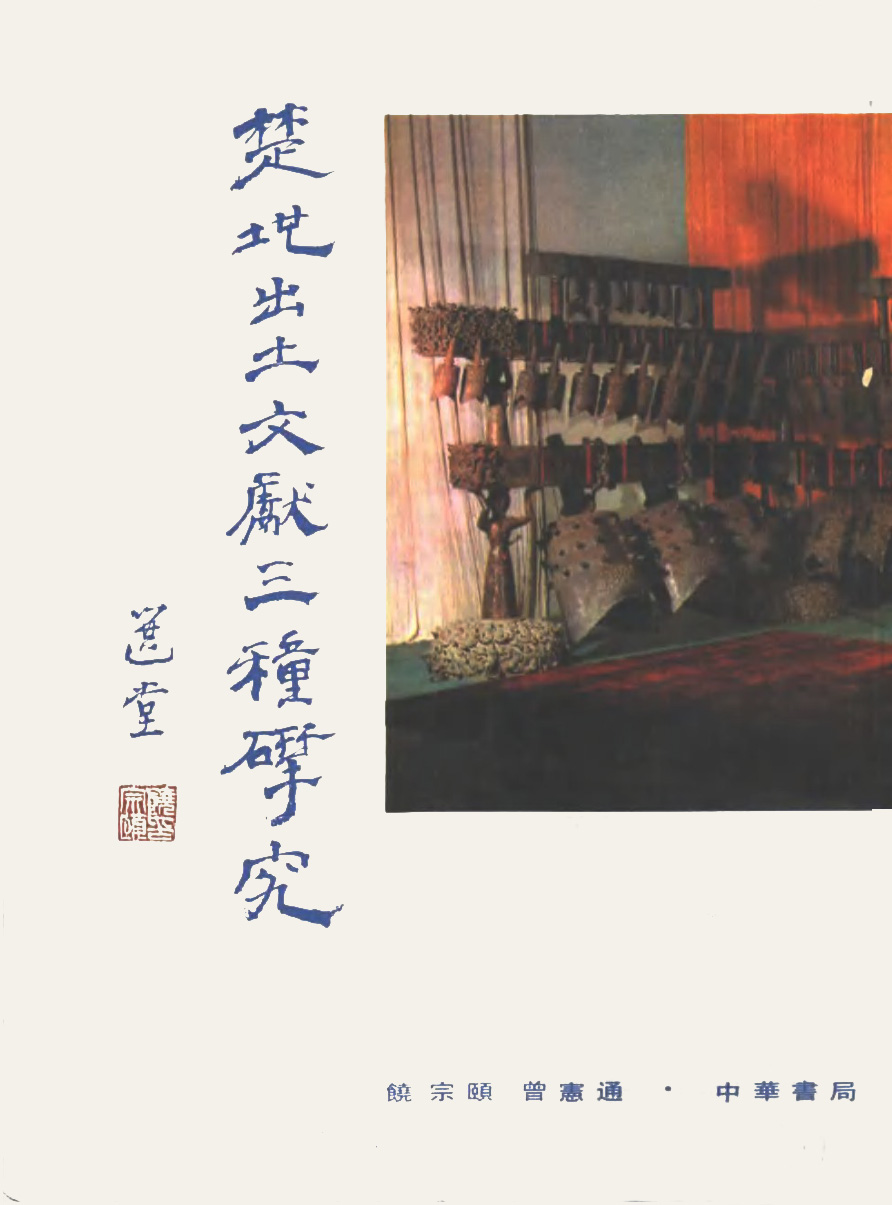 楚地出土文獻三種揅究
選堂
饒宗頤
饒宗頤 曾憲通 · 中華書局